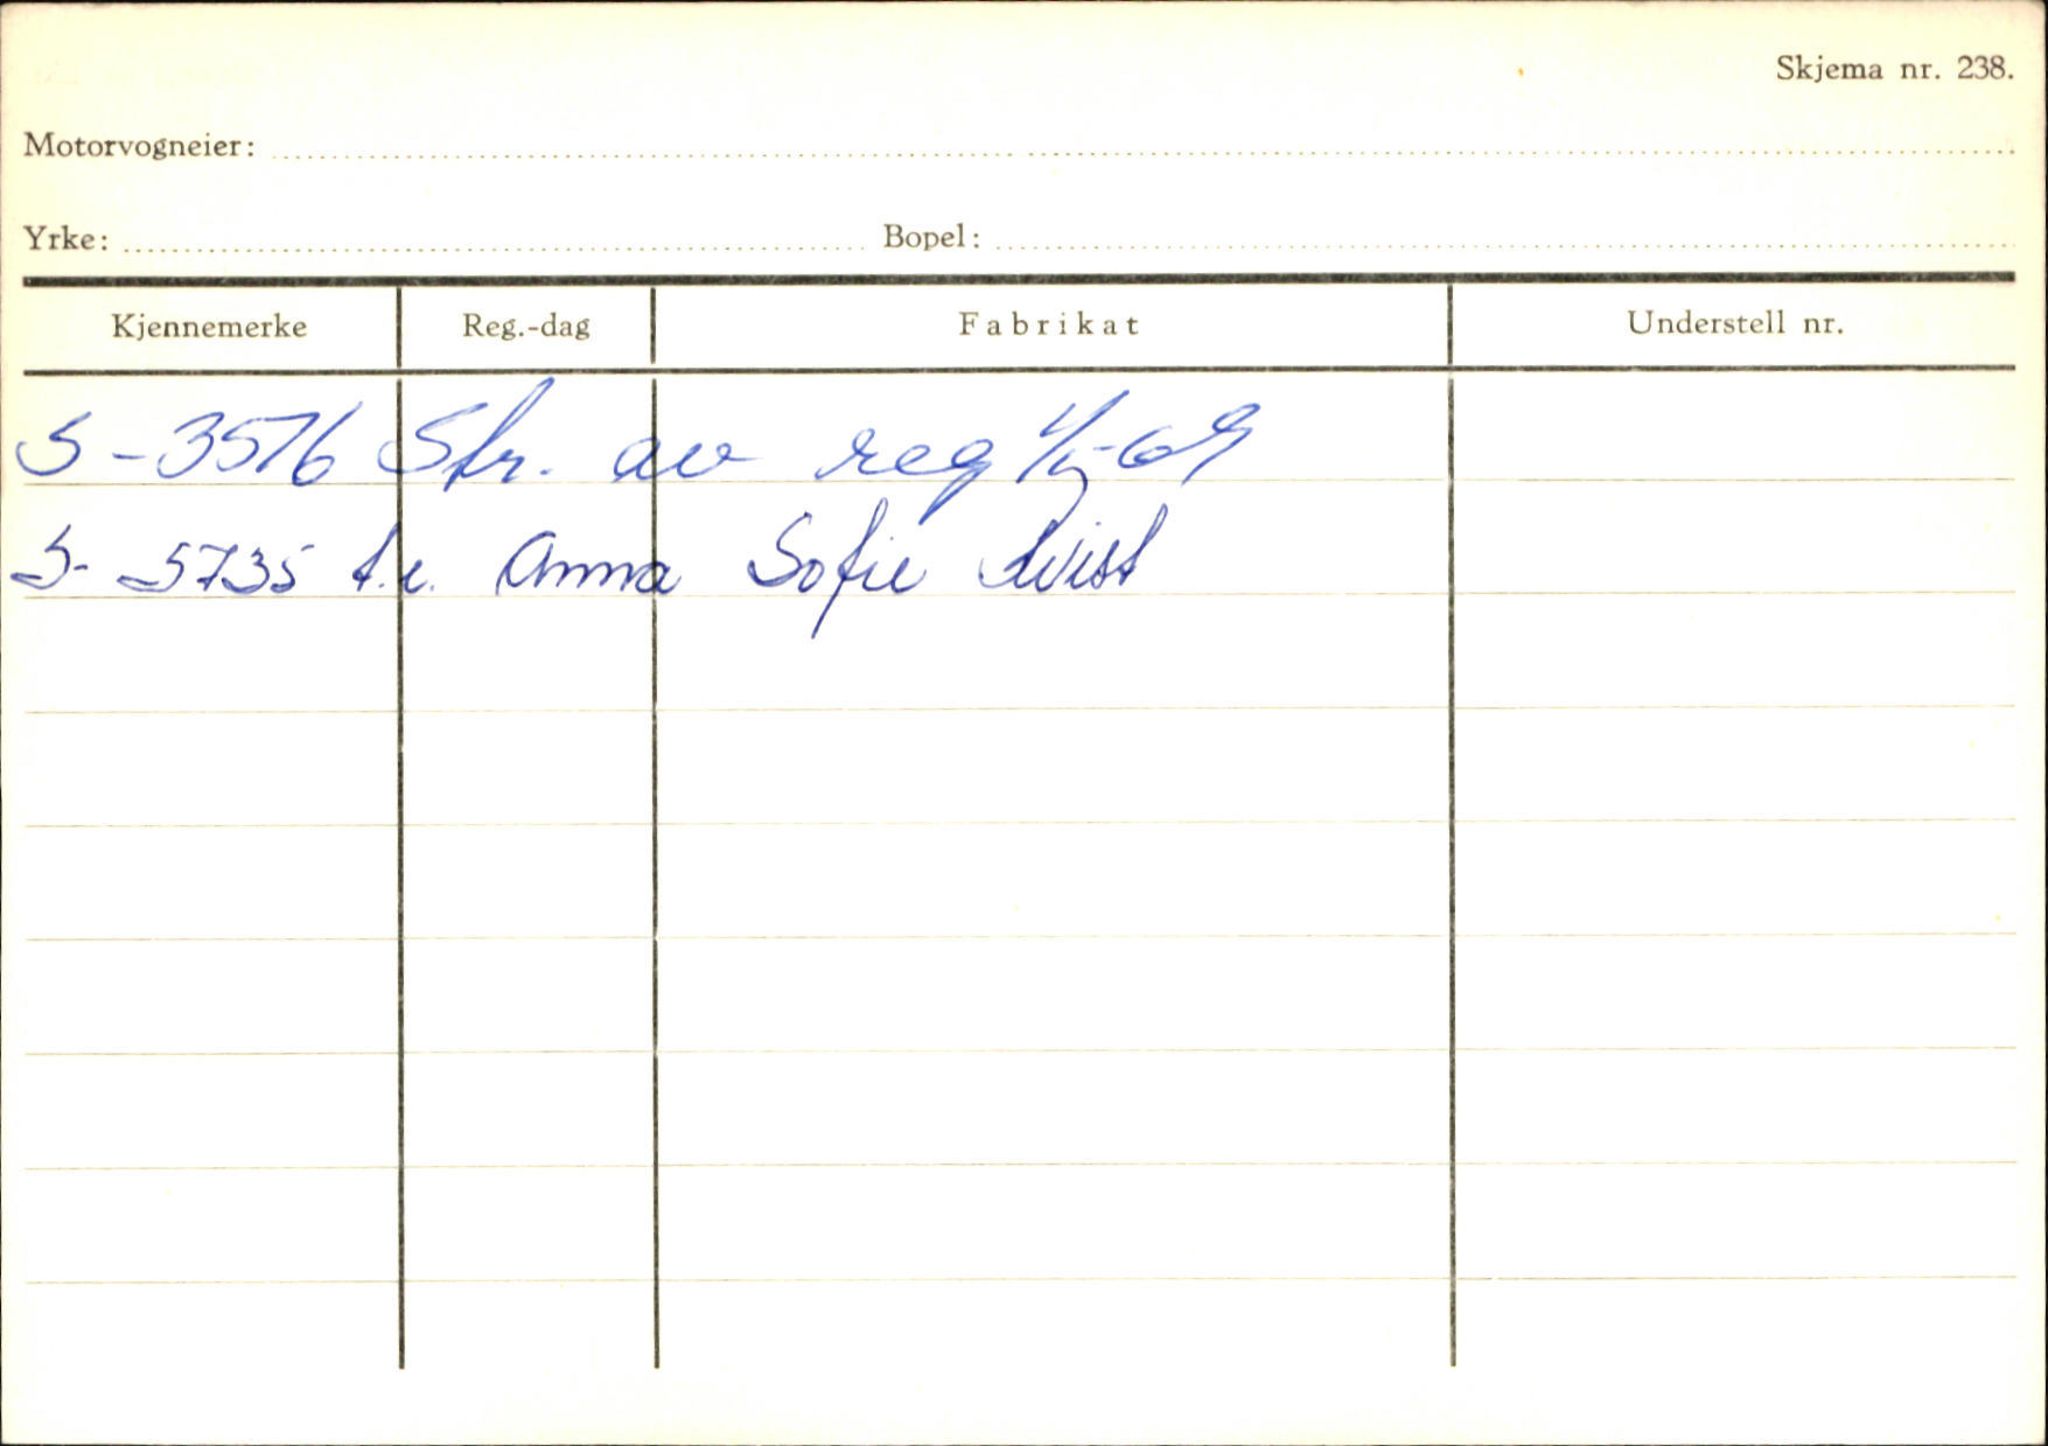 Skjema nr. 238.
Motorvogneier:
Yrke: Bopel:
Kjennemerke Reg.-dag Fabrikat Understell nr.
S-3576 Str. av reg 1/5-69
S-5735 t.e. Anna Sofie Kvist